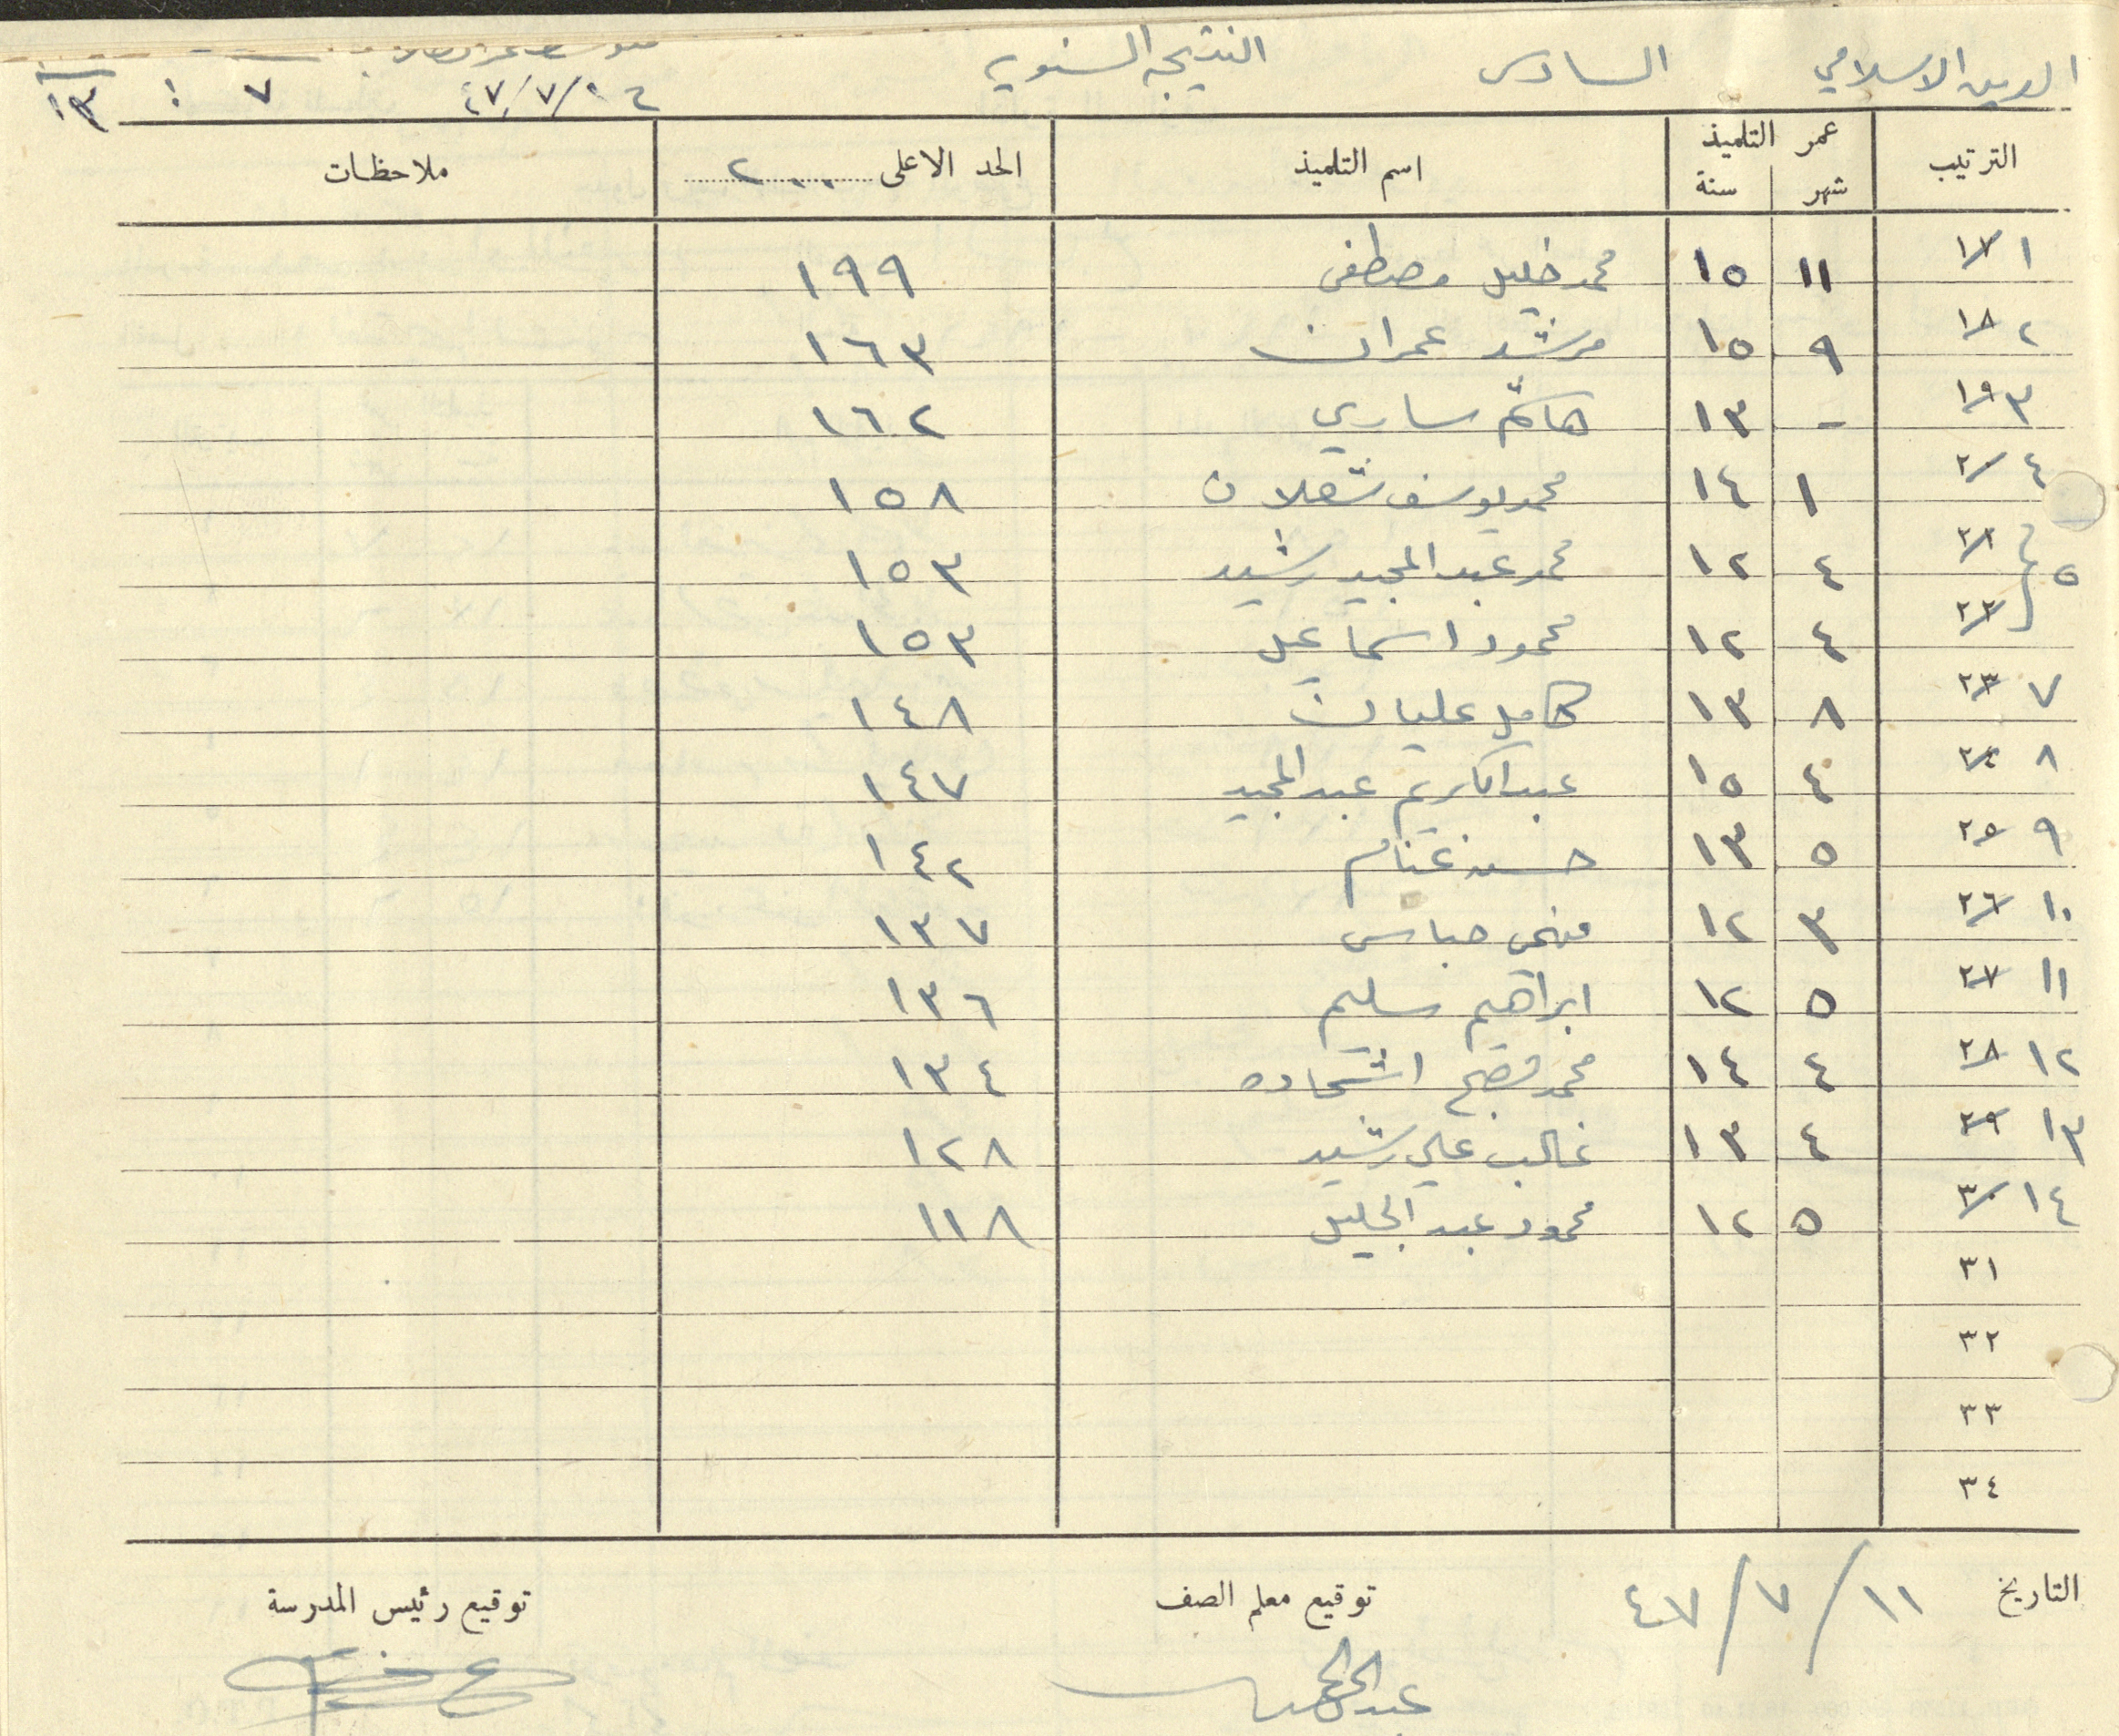 الدين الاسلامي السادس النتيجة السنوية
٤٧/٧/١٠ ٧ ١٣
الترتيب عمر التلميذ شهر سنة اسم التلميذ الحد الاعلى ٢٠٠ ملاحظات
١ ١٧ ١١ ١٥ محمد خليل مصطفى ١٩٩
٢ ١٨ ٩ ١٥ مرشد عمران ١٦٣
٣ ١٩ - ١٣ هاشم ساري ١٦٢
٤ ٢٠ ١ ١٤ محمد يوسف شعلان ١٥٨
٥ ٢١ ٤ ١٢ محمد عبد المجيد رشيد ١٥٣
٢٢ ٤ ١٢ محمود اسماعيل ١٥٣
٧ ٢٣ ٨ ١٣ كامل عليان ١٤٨
٨ ٢٤ ٤ ١٥ عبد الكريم عبد المجيد ١٤٧
٩ ٢٥ ٥ ١٣ حسين غنام ١٤٢
١٠ ٢٦ ٣ ١٢ ١٣٧
١١ ٢٧ ٥ ١٢ ابراهيم سليم ١٣٦
١٢ ٢٨ ٤ ١٤ محمد اشحاده ١٣٤
١٣ ٢٩ ٤ ١٣ غالب علي رشيد ١٢٨
١٤ ٣٠ ٥ ١٢ محمود عبد الجليل ١١٨
٣١
٣٢
٣٣
٣٤
التاريخ ١١/٧/٤٧ توقيع معلم الصف توقيع رئيس المدرسة